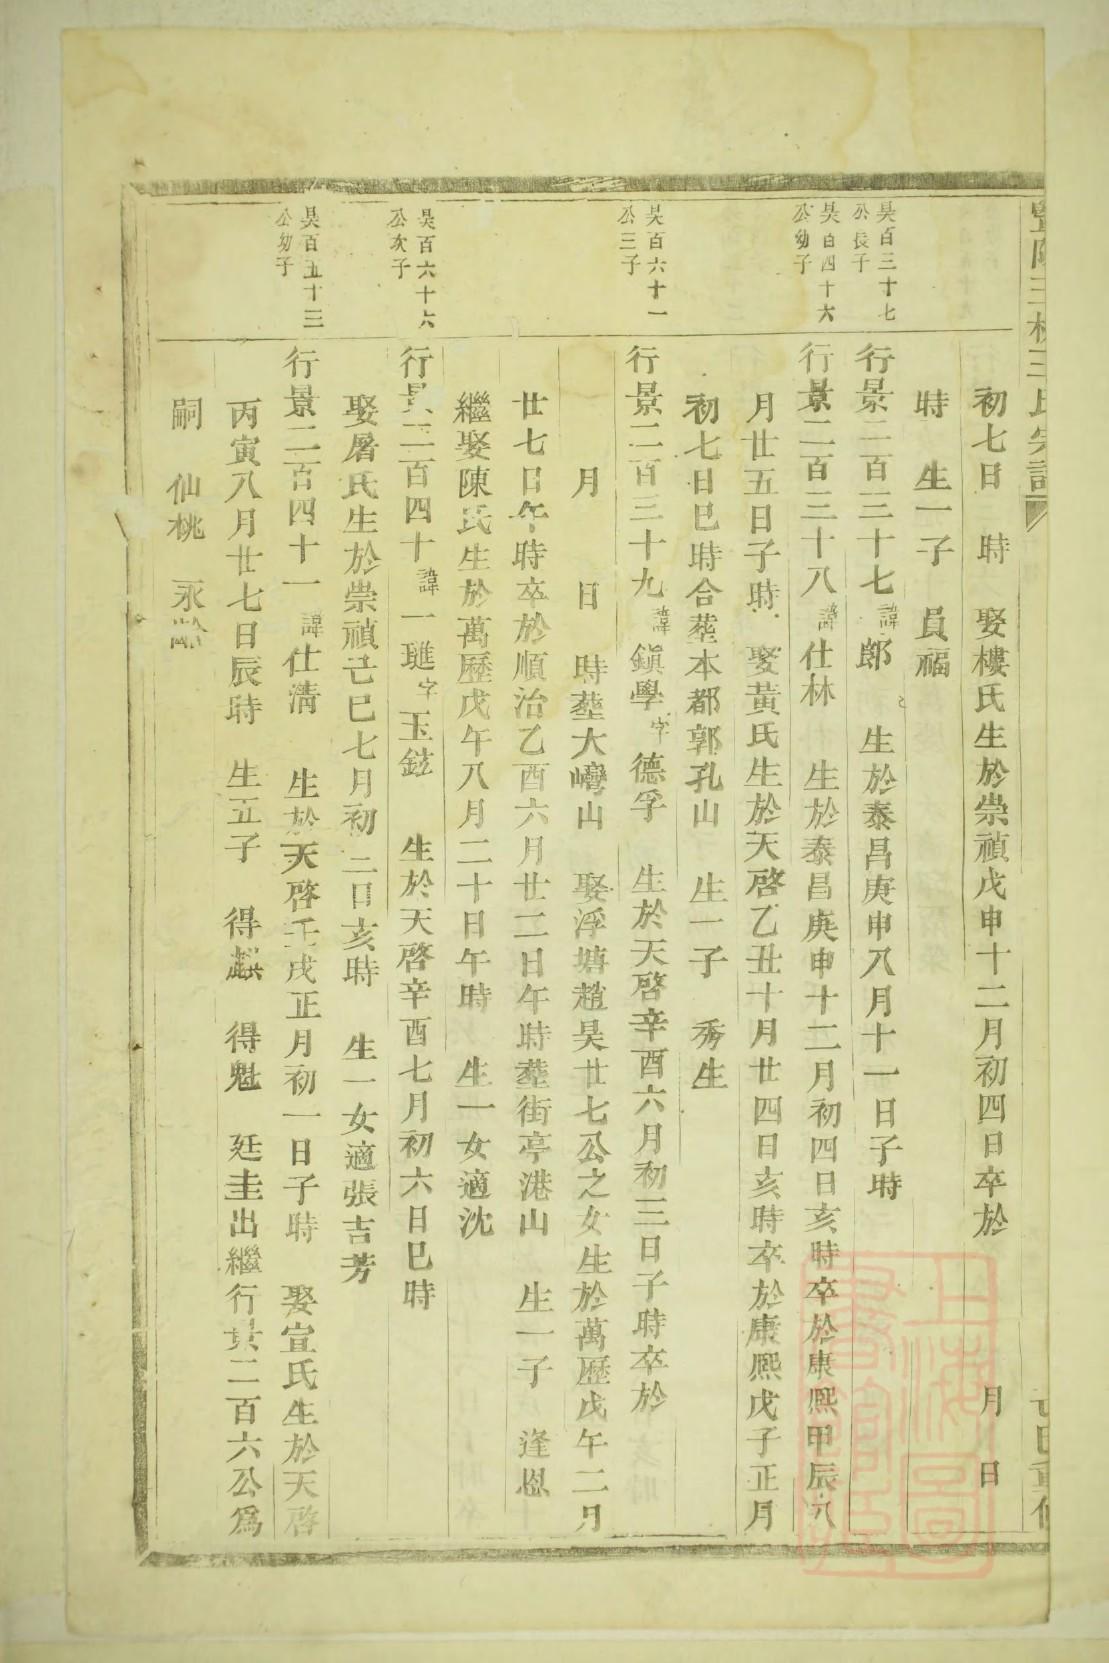 初七日　時　娶樓氏生於崇禎戊申十二月初四日卒於　月　日
時　生一子　員福
昊百三十七公長子
行景二百三十七　諱郎　生於泰昌庚申八月十一日子時
昊百四十六公幼子
行景二百三十八　諱仕林　生於泰昌庚申十二月初四日亥時卒於康熙甲辰八
月廿五日子時　娶黃氏生於天啓乙丑十月廿四日亥時卒於康熙戊子正月
初七日巳時合塟本都郭孔山　生一子　秀生
昊百六十一公三子
行景二百三十九　諱鎮學　字德孚　生於天啓辛酉六月初三日子時卒於
月　日　時塟大㠣山　娶浮塘趙昊廿七公之女生於萬歷戊午二月
廿七日午時卒於順治乙酉六月廿二日午時塟街亭港山　生一子　逢恩
繼娶陳氏生於萬歷戊午八月二十日午時　生一女適沈
昊百六十六公次子
行景二百四十　諱一璡　字玉鉉　生於天啓辛酉七月初六日巳時
娶屠氏生於崇禎己巳七月初二日亥時　生一女適張吉芳
昊百五十三公幼子
行景二百四十一　諱仕淸　生於天啓壬戌正月初一日子時　娶宣氏生於天啓
丙寅八月廿七日辰時　生五子　得麒　得魁　廷圭出繼行景二百六公爲
嗣　仙桃　永齡
上海圖書館藏